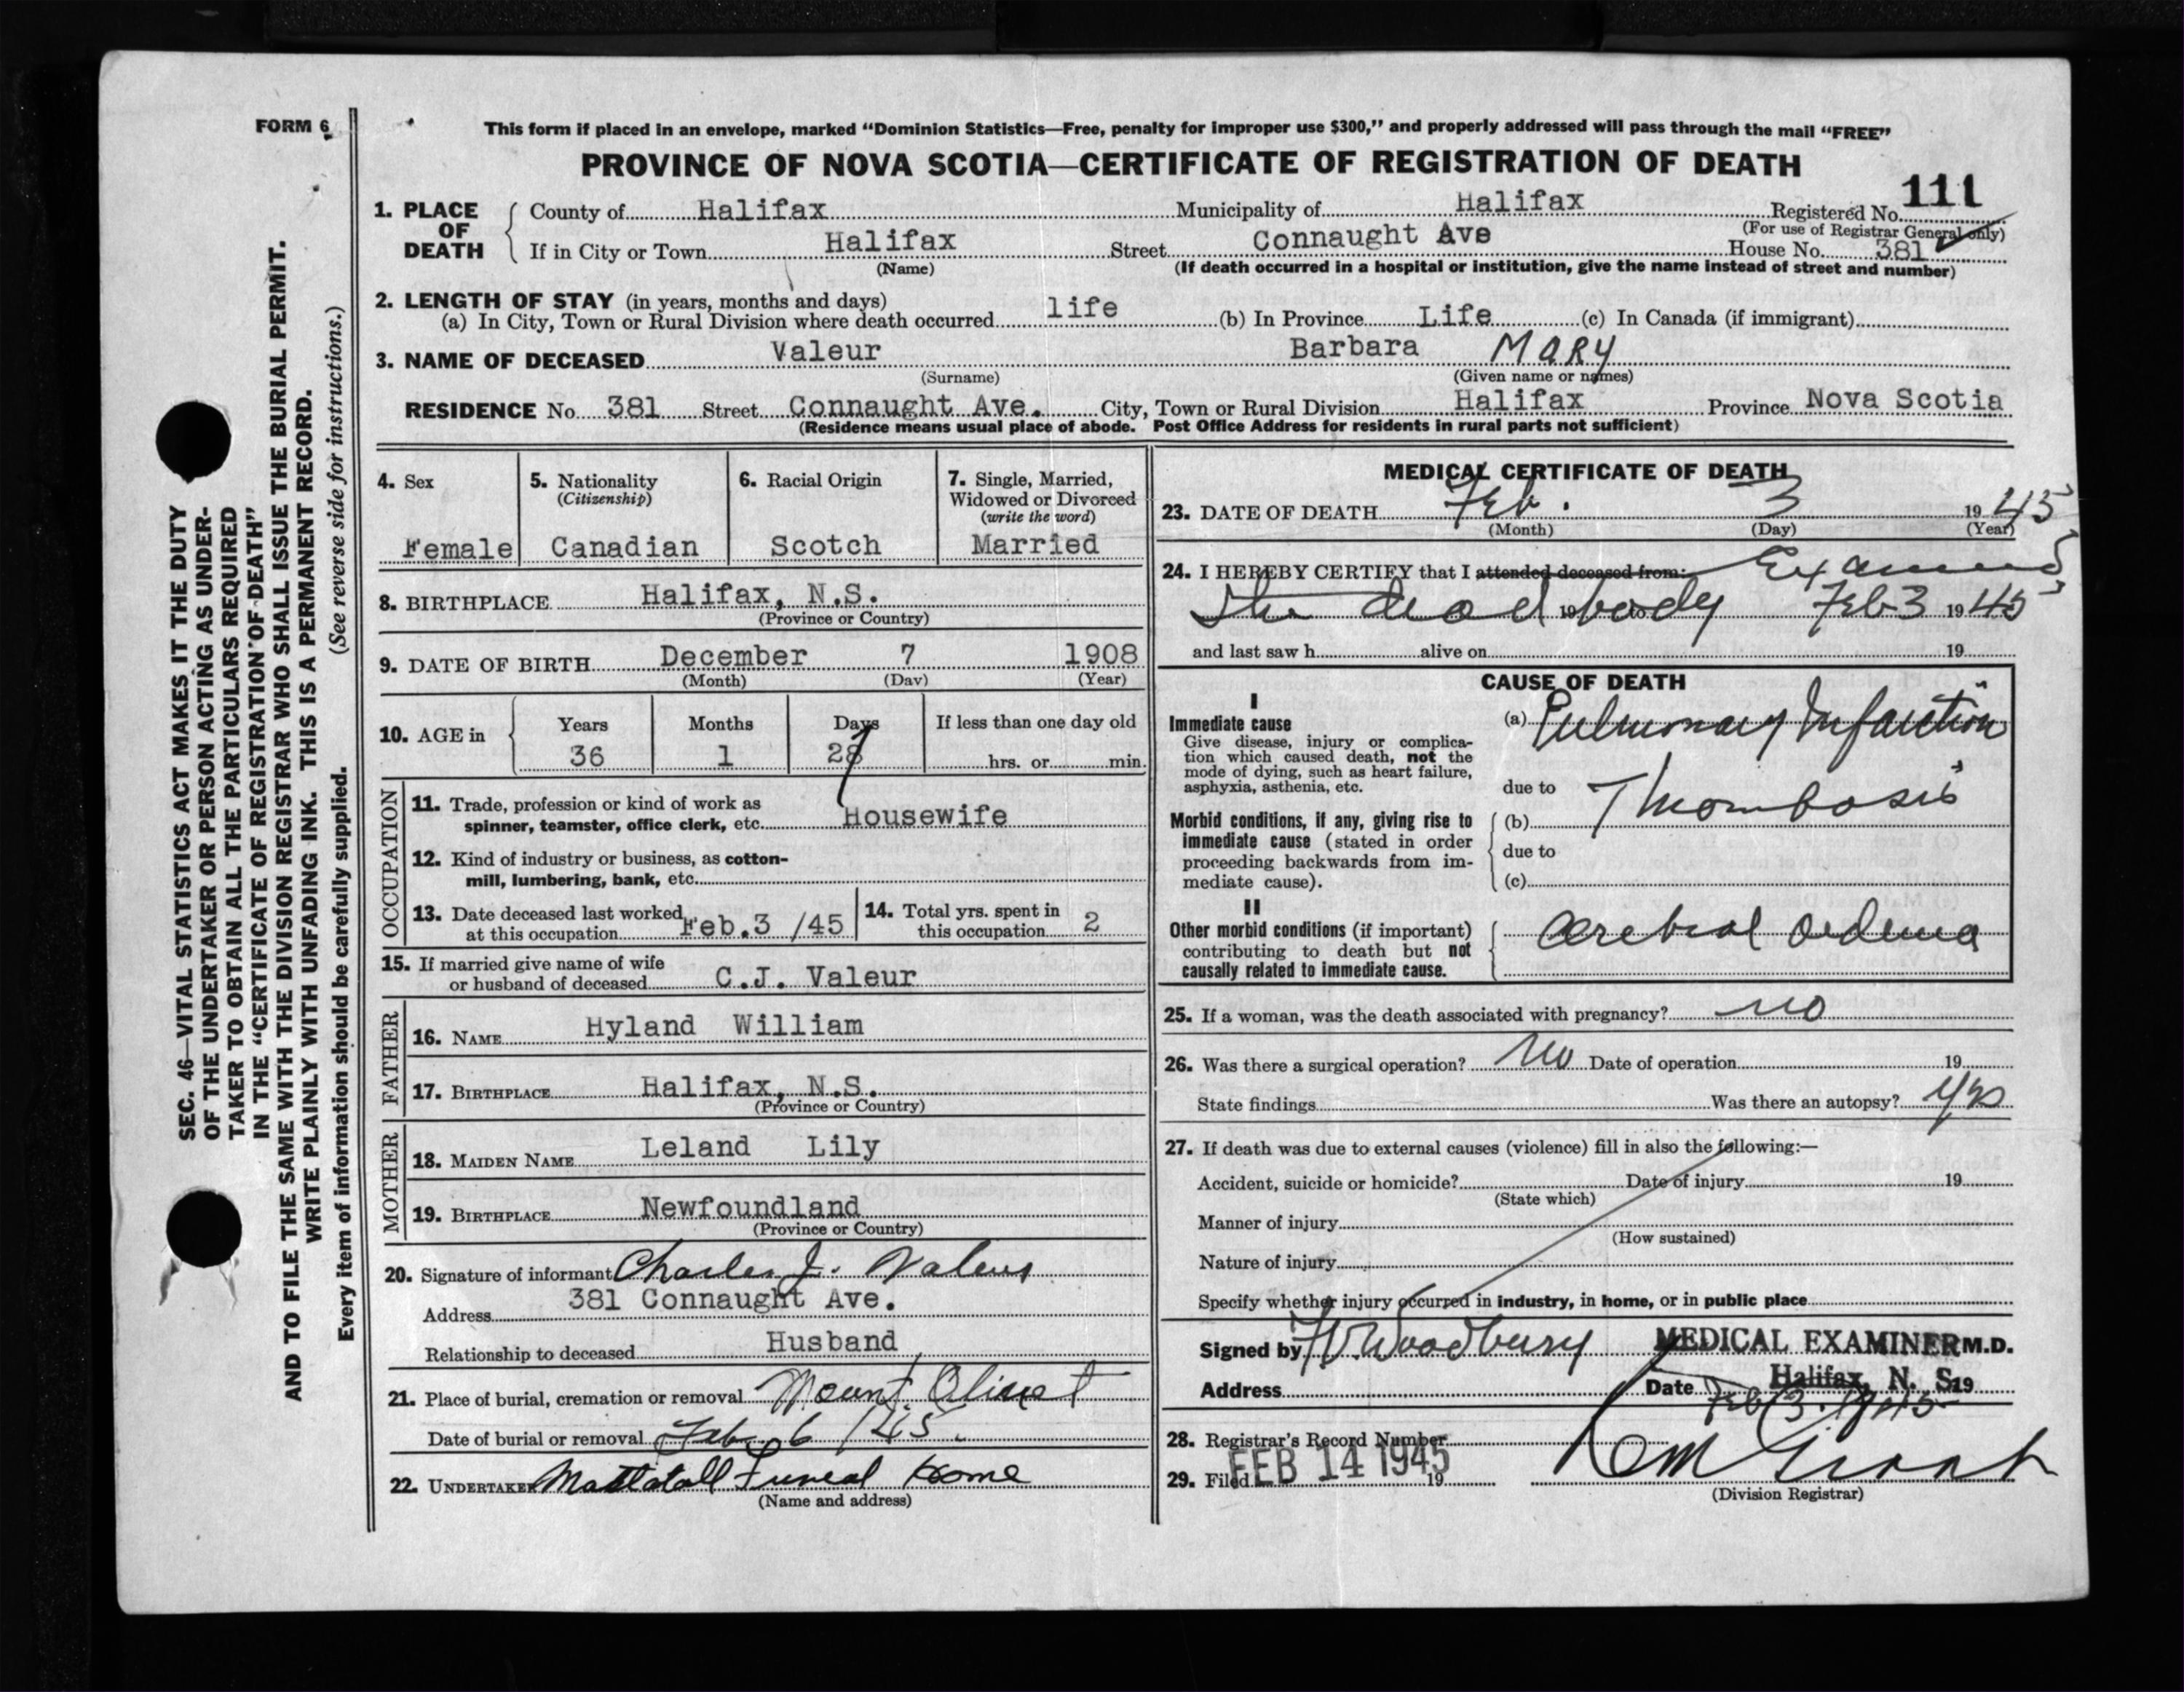 FORM 6
This form if placed in an envelope, marked “Dominion Statistics—Free, penalty for improper use $300,” and properly addressed will pass through the mail “FREE”
PROVINCE OF NOVA SCOTIA—CERTIFICATE OF REGISTRATION OF DEATH
1. PLACE OF DEATH
County of Halifax Municipality of Halifax Registered No. 111
(For use of Registrar General only)
If in City or Town Halifax Street Connaught Ave House No. 381
(Name) (If death occurred in a hospital or institution, give the name instead of street and number)
2. LENGTH OF STAY (in years, months and days)
(a) In City, Town or Rural Division where death occurred life (b) In Province Life (c) In Canada (if immigrant)
3. NAME OF DECEASED Valeur Barbara MARY
(Surname) (Given name or names)
RESIDENCE No. 381 Street Connaught Ave. City, Town or Rural Division Halifax Province Nova Scotia
(Residence means usual place of abode. Post Office Address for residents in rural parts not sufficient)
4. Sex
Female
5. Nationality
(Citizenship)
Canadian
6. Racial Origin
Scotch
7. Single, Married,
Widowed or Divorced
(write the word)
Married
8. BIRTHPLACE Halifax, N.S.
(Province or Country)
9. DATE OF BIRTH December 7 1908
(Month) (Day) (Year)
10. AGE in
Years Months Days If less than one day old
36 1 28 hrs. or min.
OCCUPATION
11. Trade, profession or kind of work as
spinner, teamster, office clerk, etc. Housewife
12. Kind of industry or business, as cotton-
mill, lumbering, bank, etc.
13. Date deceased last worked
at this occupation Feb.3 /45
14. Total yrs. spent in
this occupation 2
15. If married give name of wife
or husband of deceased C.J. Valeur
FATHER
16. NAME Hyland William
17. BIRTHPLACE Halifax, N.S.
(Province or Country)
MOTHER
18. MAIDEN NAME Leland Lily
19. BIRTHPLACE Newfoundland
(Province or Country)
20. Signature of informant Charles J. Valeur
Address 381 Connaught Ave.
Relationship to deceased Husband
21. Place of burial, cremation or removal Mount Olivet
Date of burial or removal Feb 6 /45.
22. UNDERTAKER Mattatall Funeral Home
(Name and address)
MEDICAL CERTIFICATE OF DEATH
23. DATE OF DEATH Feb. 3 1945
(Month) (Day) (Year)
24. I HEREBY CERTIFY that I attended deceased from: Examined
the dead 19 body to Feb 3 1945
and last saw h alive on 19
CAUSE OF DEATH
I
Immediate cause
Give disease, injury or complica-
tion which caused death, not the
mode of dying, such as heart failure,
asphyxia, asthenia, etc.
(a) Pulmonary Infarction
due to Thombosis
Morbid conditions, if any, giving rise to
immediate cause (stated in order
proceeding backwards from im-
mediate cause).
(b)
due to
(c)
II
Other morbid conditions (if important)
contributing to death but not
causally related to immediate cause.
Cerebral Oedema
25. If a woman, was the death associated with pregnancy? no
26. Was there a surgical operation? No Date of operation 19
State findings Was there an autopsy? yes
27. If death was due to external causes (violence) fill in also the following:—
Accident, suicide or homicide? Date of injury 19
(State which)
Manner of injury
(How sustained)
Nature of injury
Specify whether injury occurred in industry, in home, or in public place
Signed by Woodbury MEDICAL EXAMINER M.D.
Address Date Halifax, N. S. 19
Feb 3. 1945
28. Registrar's Record Number
29. Filed FEB 14 1945 19
(Division Registrar)
SEC. 46—VITAL STATISTICS ACT MAKES IT THE DUTY
OF THE UNDERTAKER OR PERSON ACTING AS UNDER-
TAKER TO OBTAIN ALL THE PARTICULARS REQUIRED
IN THE “CERTIFICATE OF REGISTRATION OF DEATH”
AND TO FILE THE SAME WITH THE DIVISION REGISTRAR WHO SHALL ISSUE THE BURIAL PERMIT.
WRITE PLAINLY WITH UNFADING INK. THIS IS A PERMANENT RECORD.
Every item of information should be carefully supplied. (See reverse side for instructions.)